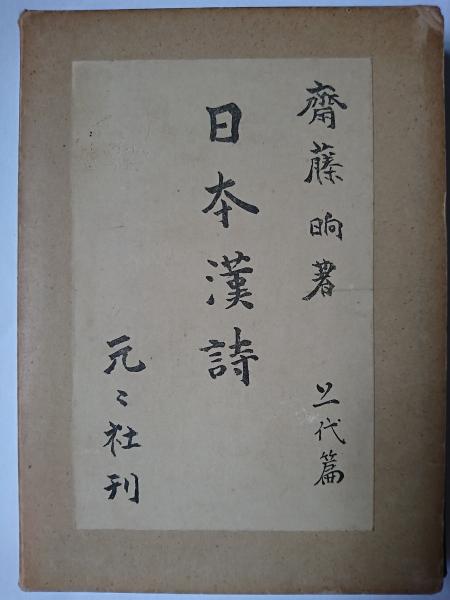 齋藤晌著
日本漢詩
上代篇
元〻社刊